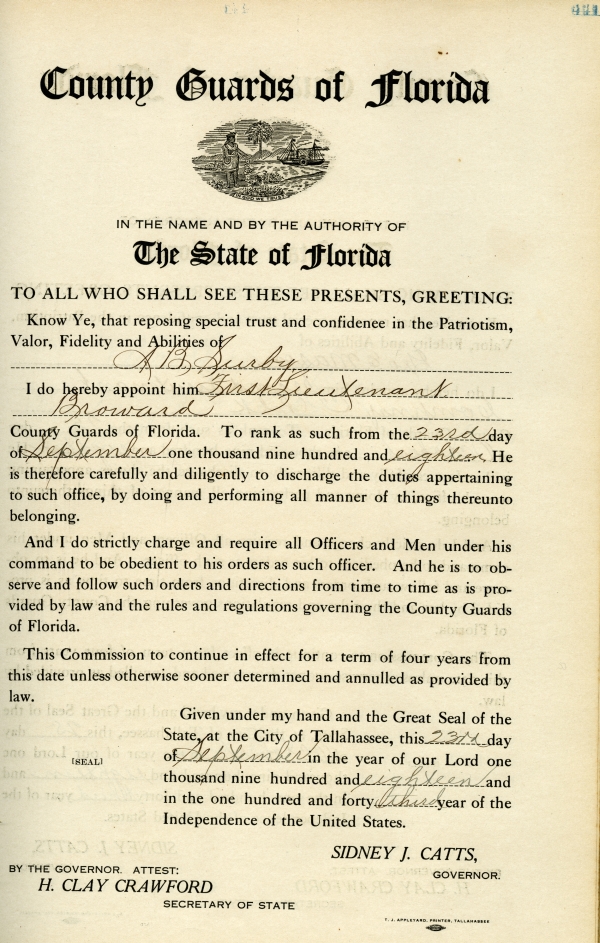 County Guards of Florida
IN GOD WE TRUST
IN THE NAME AND BY THE AUTHORITY OF
The State of Florida
TO ALL WHO SHALL SEE THESE PRESENTS, GREETING:
Know Ye, that reposing special trust and confidence in the Patriotism,
Valor, Fidelity and Abilities of
A B Surby
I do hereby appoint him First Lieutenant
Broward
County Guards of Florida. To rank as such from the 23rd day
of September one thousand nine hundred and eighteen He
is therefore carefully and diligently to discharge the duties appertaining
to such office, by doing and performing all manner of things thereunto
belonging.
And I do strictly charge and require all Officers and Men under his
command to be obedient to his orders as such officer. And he is to ob-
serve and follow such orders and directions from time to time as is pro-
vided by law and the rules and regulations governing the County Guards
of Florida.
This Commission to continue in effect for a term of four years from
this date unless otherwise sooner determined and annulled as provided by
law.
Given under my hand and the Great Seal of the
State, at the City of Tallahassee, this 23rd day
[SEAL] of September in the year of our Lord one
thousand nine hundred and eighteen and
in the one hundred and forty third year of the
Independence of the United States.
SIDNEY J. CATTS,
GOVERNOR.
BY THE GOVERNOR. ATTEST:
H. CLAY CRAWFORD
SECRETARY OF STATE
T. J. APPLEYARD, PRINTER, TALLAHASSEE